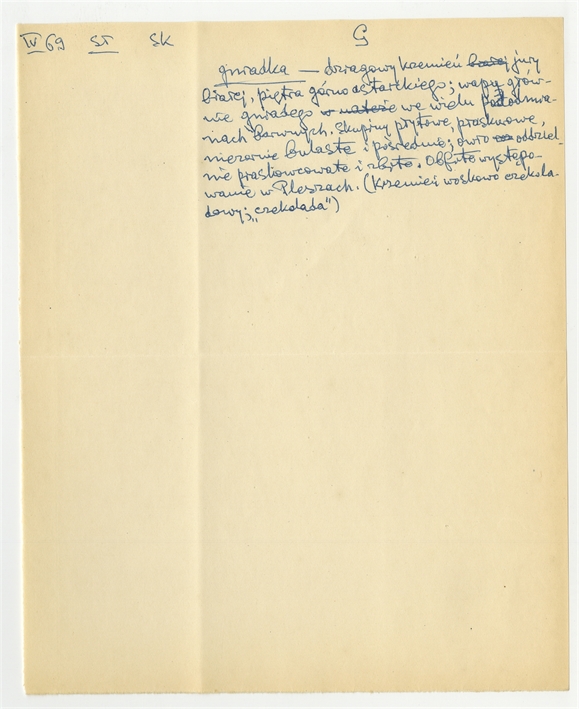 IV 69 ST SK G
gniadka — drzagowy krzemień białej jury
białej, piętra górno astarckiego; wapu głów-
nie gniadego w we wielu pododmia-
nach barwnych. Skupiny płytowe, płaskurowe,
nierównie bulaste i pośrednie; owo oddziel-
nie piaskowcowate i zbite. Obfite występo-
wanie w Pleszach. (Krzemień woskowo czekola-
dowy; „czekolada")